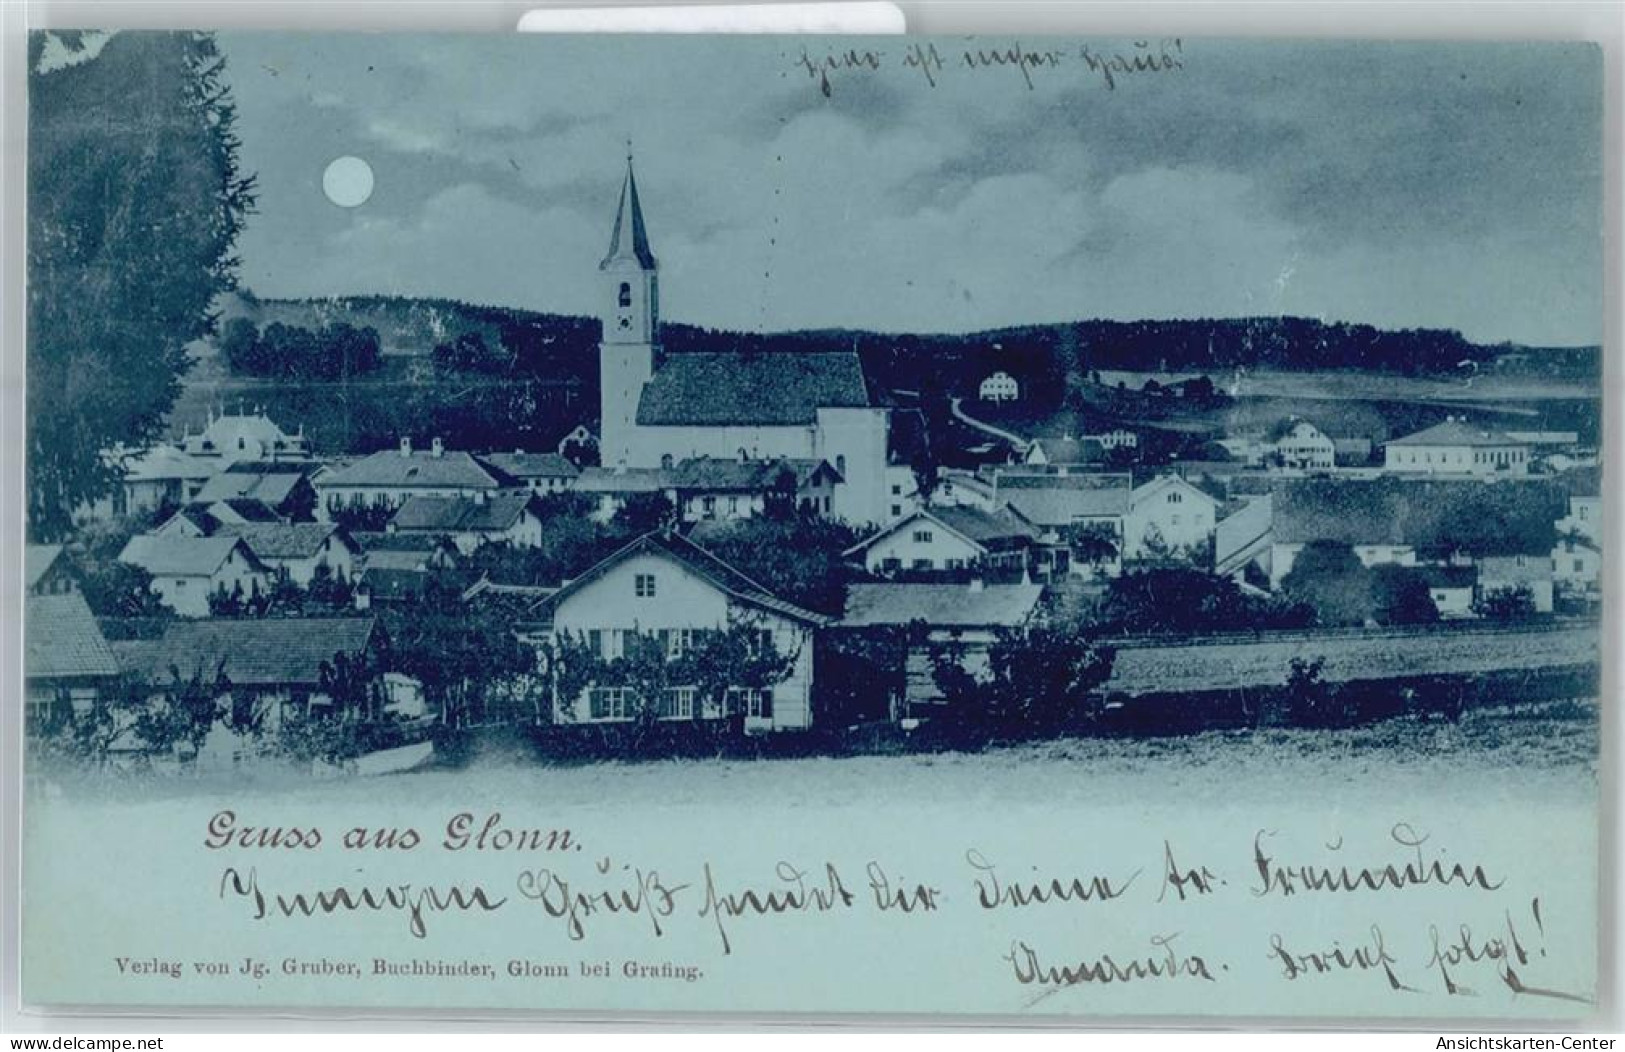 Hier ist unser Haus!
Gruss aus Glonn.
Innigen Gruß sendet dir Deine tr. Freundin
Amanda. Brief folgt!
Verlag von Jg. Gruber, Buchbinder, Glonn bei Grafing.
www.delcampe.net
delcampe.net
stenders123
Ansichtskarten-Center